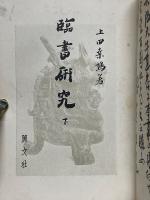 上田桑鳩著
臨書研究
下
興文社